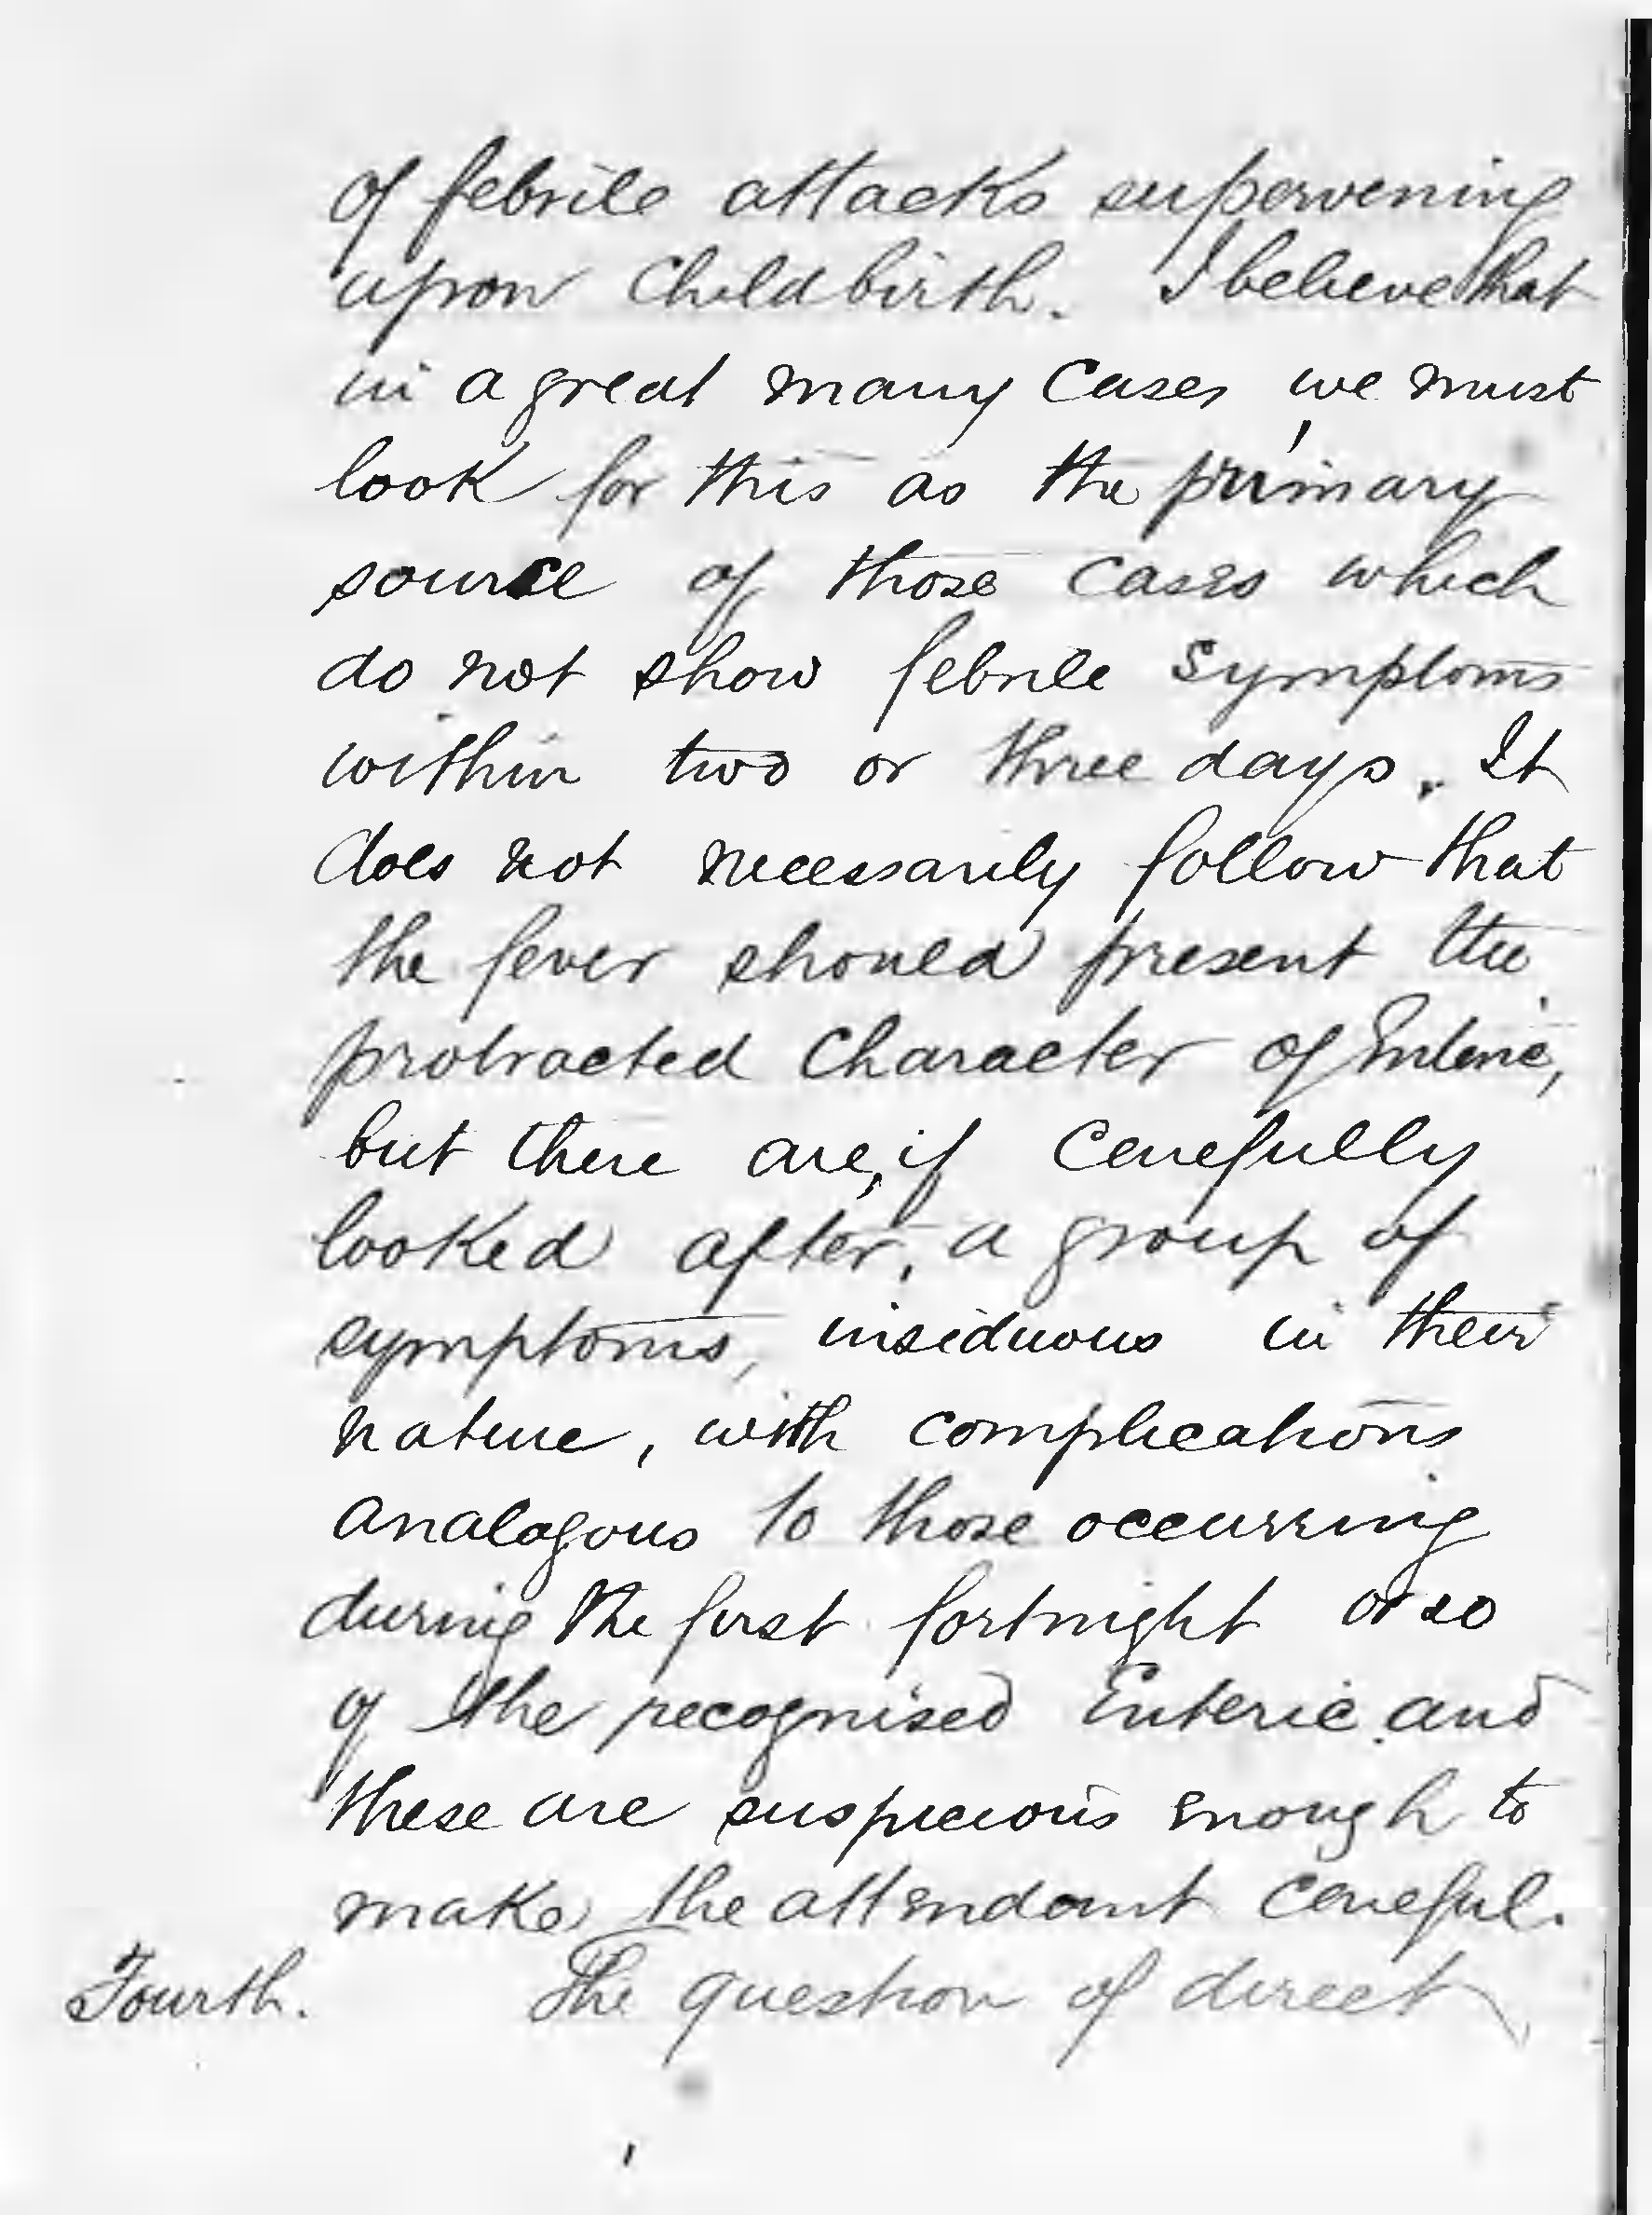 of febrile attacks supervening
upon Childbirth. I believe that
in a great many Cases, we must
look for this as the primary
source of those cases which
do not show febrile symptoms
within two or three days. It
does not necessarily follow that
the fever should present the
protracted Character of Enteric,
but there are, if carefully
looked after, a group of
symptoms, insiduous in their
nature, with complications
analagous to those occurring
during the first fortnight or so
of the recognised Enteric and
these are suspicious enough to
make the attendant careful.
Fourth. The question of direct